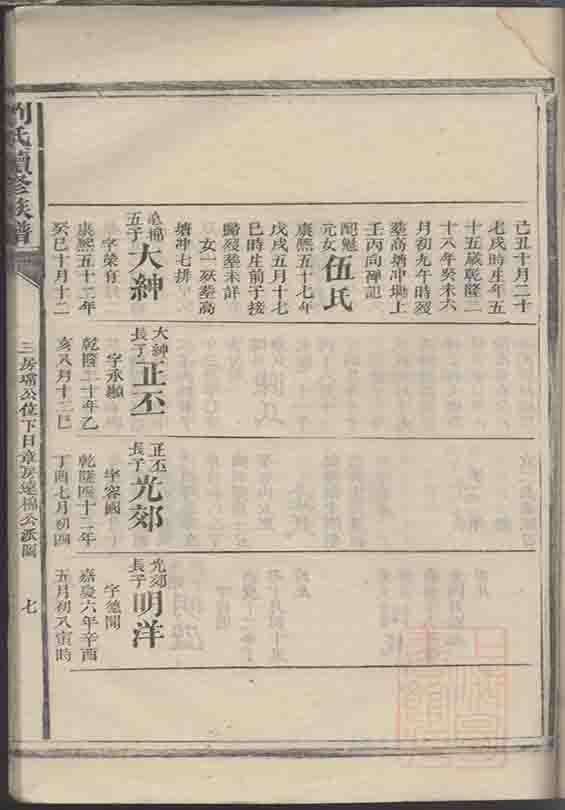 己丑十月二十
七戌時生年五
十五歲乾隆二
十八年癸未六
月初九午時歿
葬高塘冲塝上
壬丙向碑記
配魁元女伍氏
康熙五十七年
戊戌五月十七
巳時生前于接
歸歿葬未詳
女一歿葬高
塘冲七排
五子大紳
字榮育
康熙五十二年
癸巳十月十二
大紳長子正丕
字承顯
乾隆二十年乙
亥八月十二巳
正丕長子光郊
字容國
乾隆四十二年
丁酉七月初四
光郊長子明洋
字德開
嘉慶六年辛酉
五月初八寅時
劉氏續修族譜
三房瑞公位下日章房達棉公派圖
七